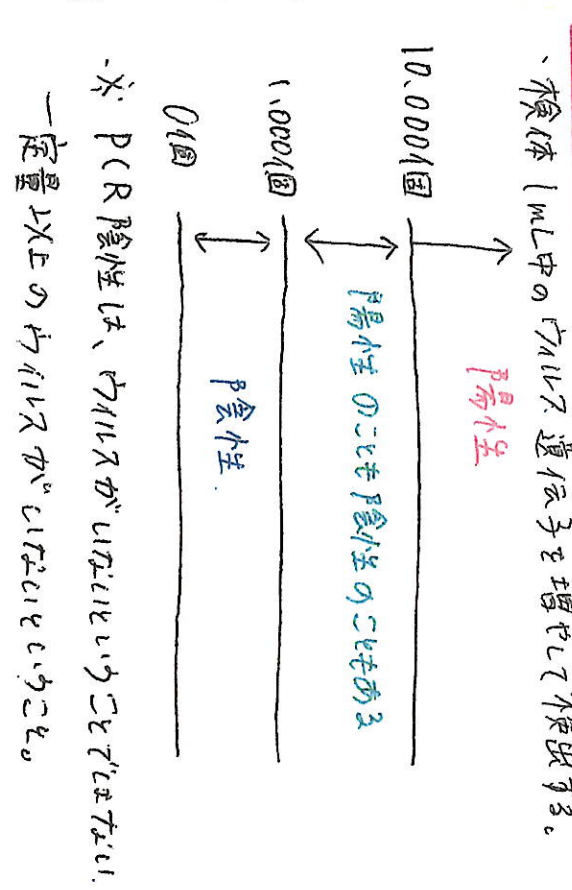 ・検体1mL中のウイルス遺伝子を増やして検出する。
陽性
10.000個
陽性のことも陰性のこともある
1.000個
陰性.
0個
※ PCR陰性は、ウイルスがいないということではない.
一定量以上のウイルスがいないということ。